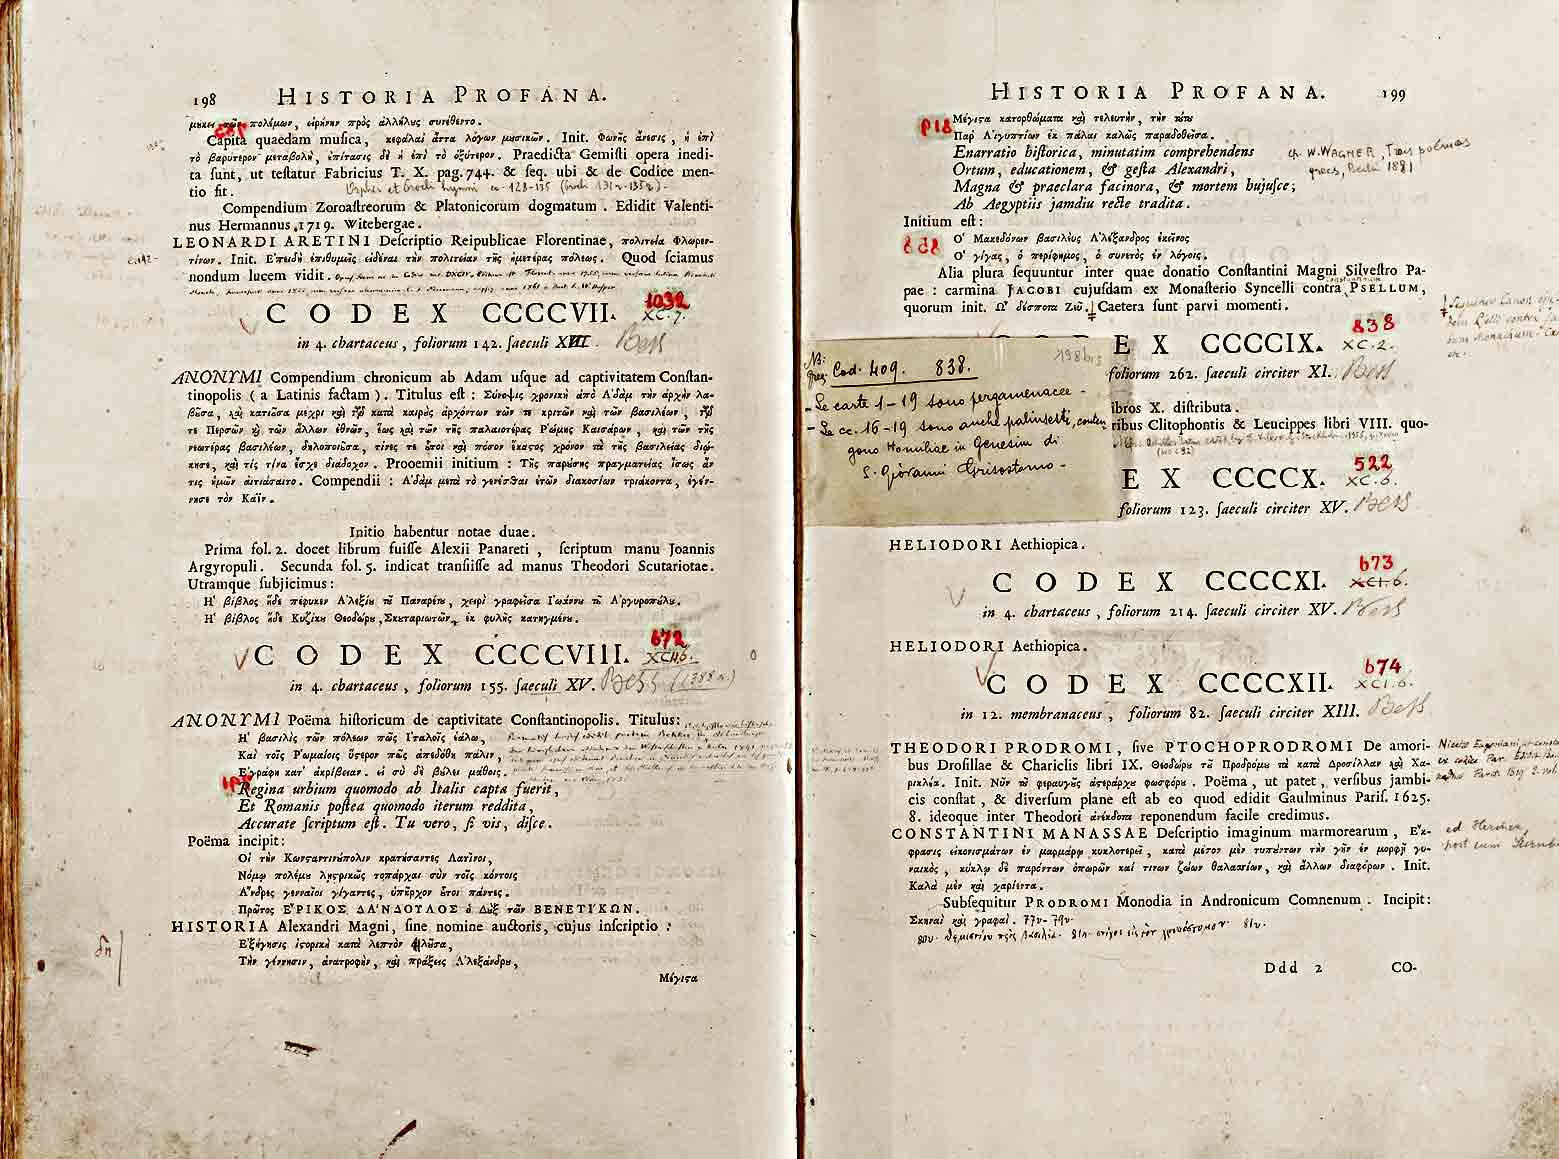 198 HISTORIA PROFANA.
μηκει τῶν πολέμων, εἰρήνην πρὸς ἀλλήλους συνέθεντο.
Capita quaedam musica, κεφάλαι ἄττα λόγων μυσικῶν. Init. Φωνῆς ἄνεσις, ἡ ἐπὶ
τὸ βαρύτερον μεταβολὴ, ἐπίτασις δὲ ἡ ἐπὶ τὸ ὀξύτερον. Praedicta Gemisti opera inedi-
ta sunt, ut testatur Fabricius T. X. pag. 744. & seq. ubi & de Codice men-
tio fit.
Compendium Zoroastreorum & Platonicorum dogmatum. Edidit Valenti-
nus Hermannus 1719. Witebergae.
LEONARDI ARETINI Descriptio Reipublicae Florentinae, πολιτεία Φλωρεν-
τίνων. Init. Ἐπειδὴ ἐπιθυμεῖς εἰδέναι τὴν πολιτείαν τῆς ἡμετέρας πόλεως. Quod sciamus
nondum lucem vidit.
CODEX CCCCVII. 1032
XC.7.
in 4. chartaceus, foliorum 142. saeculi XVII. Bess
ANONYMI Compendium chronicum ab Adam usque ad captivitatem Constan-
tinopolis (a Latinis factam). Titulus est: Σύνοψις χρονικὴ ἀπὸ Ἀδὰμ τὴν ἀρχὴν λα-
βοῦσα, καὶ κατιοῦσα μέχρι καὶ τῶν κατὰ καιρὸς ἀρχόντων τῶν τε κριτῶν καὶ τῶν βασιλέων, τῶν
τε Περσῶν καὶ τῶν ἄλλων ἐθνῶν, ἕως καὶ τῶν τῆς παλαιοτέρας Ῥώμης Καισάρων, καὶ τῶν τῆς
νεωτέρας βασιλέων, δηλοποιοῦσα, τίνες τε οὗτοι καὶ πόσον ἕκαστος χρόνον τὰ τῆς βασιλείας διῴ-
κησε, καὶ τίς τίνα ἔσχε διάδοχον. Prooemii initium: Τῆς παρούσης πραγματείας ἴσως ἄν
τις ἡμῶν αἰτιάσαιτο. Compendii: Ἀδὰμ μετὰ τὸ γενέσθαι ἐτῶν διακοσίων τριάκοντα, ἐγέν-
νησε τὸν Καΐν.
Initio habentur notae duae.
Prima fol. 2. docet librum fuisse Alexii Panareti, scriptum manu Joannis
Argyropuli. Secunda fol. 5. indicat transiisse ad manus Theodori Scutariotae.
Utramque subjicimus:
Ἡ βίβλος ἥδε πέφυκεν Ἀλεξίου τοῦ Παναρέτου, χειρὶ γραφεῖσα Ἰωάννου τοῦ Ἀργυροπούλου.
Ἡ βίβλος ἥδε Κυζίκου Θεοδώρου, Σκουταριωτῶν, ἐκ φυλῆς κατηγμένου.
CODEX CCCCVIII. 672
in 4. chartaceus, foliorum 155. saeculi XV. Bess (1388 v.)
ANONYMI Poëma historicum de captivitate Constantinopolis. Titulus:
Ἡ βασιλὶς τῶν πόλεων πῶς Ἰταλοῖς ἑάλω,
Καὶ τοῖς Ῥωμαίοις ὕστερον πῶς ἀπεδόθη πάλιν,
Ἐγράφη κατ' ἀκρίβειαν. εἰ σὺ δὲ βούλει μάθοις.
Regina urbium quomodo ab Italis capta fuerit,
Et Romanis postea quomodo iterum reddita,
Accurate scriptum est. Tu vero, si vis, disce.
Poëma incipit:
Οἱ τὴν Κωνσαντινύπολιν κρατήσαντες Λατῖνοι,
Νόμῳ πολέμου λῃστρικῶς τοπάρχαι σὺν τοῖς κόντοις
Ἄνδρες γενναῖοι γίγαντες, ὑπῆρχον οὗτοι πάντες.
Πρῶτος ἘΡΙΚΟΣ ΔΑΝΔΟΥΛΟΣ ὁ Δοὺξ τῶν ΒΕΝΕΤΙΚΩΝ.
HISTORIA Alexandri Magni, sine nomine auctoris, cujus inscriptio:
Ἐξήγησις ἱστορικὴ κατὰ λεπτὸν
Τὴν γέννησιν, ἀνατροφὴν, καὶ πράξεις Ἀλεξάνδρου,
Μέγιστα
HISTORIA PROFANA. 199
Μέγιστα κατορθώματα καὶ τελευτὴν, τὴν τούτου
Παρ' Αἰγυπτίων ἐκ πάλαι καλῶς παραδοθεῖσα.
Enarratio historica, minutatim comprehendens
Ortum, educationem, & gesta Alexandri,
Magna & praeclara facinora, & mortem hujusce;
Ab Aegyptiis jamdiu recte tradita.
cfr. W. WAGNER, Trois poèmes
grecs, Berlin 1881
Initium est:
Ὁ Μακεδόνων βασιλεὺς Ἀλέξανδρος ἐκεῖνος
Ὁ γίγας, ὁ περίφημος, ὁ συνετὸς ἐν λόγοις.
Alia plura sequuntur inter quae donatio Constantini Magni Silvestro Pa-
pae: carmina JACOBI cujusdam ex Monasterio Syncelli contra PSELLUM,
quorum init. Ὦ δέσποτα Ζεῦ. Caetera sunt parvi momenti.
EX CCCCIX. 838
XC.2.
foliorum 262. saeculi circiter XI. Bess
198 bis
Cod. 409. 838.
- Le carte 1-19 sono pergamenacee -
- Le cc. 16-19 sono anche palinseste, conten
gono Homiliae in Genesim di
S. Giovanni Grisostomo -
ibros X. distributa.
ribus Clitophontis & Leucippes libri VIII. quo-
EX CCCCX. 522
XC.6.
foliorum 123. saeculi circiter XV. Bess
HELIODORI Aethiopica.
CODEX CCCCXI. 673
XCI.6.
in 4. chartaceus, foliorum 214. saeculi circiter XV. Bess
HELIODORI Aethiopica.
CODEX CCCCXII. 674
XCI.6.
in 12. membranaceus, foliorum 82. saeculi circiter XIII. Bess
THEODORI PRODROMI, sive PTOCHOPRODROMI De amori-
bus Drosillae & Chariclis libri IX. Θεοδώρου τοῦ Προδρόμου τὰ κατὰ Δροσίλλαν καὶ Χα-
ρικλέα. Init. Νῦν τοῦ φεραυγοῦς ἀστεράρχου φωσφόρου. Poëma, ut patet, versibus jambi-
cis constat, & diversum plane est ab eo quod edidit Gaulminus Paris. 1625.
8. ideoque inter Theodori ἀνέκδοτα reponendum facile credimus.
CONSTANTINI MANASSAE Descriptio imaginum marmorearum, Ἔκ-
φρασις εἰκονισμάτων ἐν μαρμάρῳ κυκλοτερεῖ, κατὰ μέσον μὲν τυπούντων τὴν γῆν ἐν μορφῇ γυ-
ναικὸς, κύκλῳ δὲ παρόντων ὀπωρῶν καί τινων ζώων θαλασσίων, καὶ ἄλλων διαφόρων. Init.
Καλὰ μὲν καὶ χαρίεντα.
Subsequitur PRODROMI Monodia in Andronicum Comnenum. Incipit:
Σκηναὶ καὶ γραφαί. 77v-79v.
Ddd 2 CO-